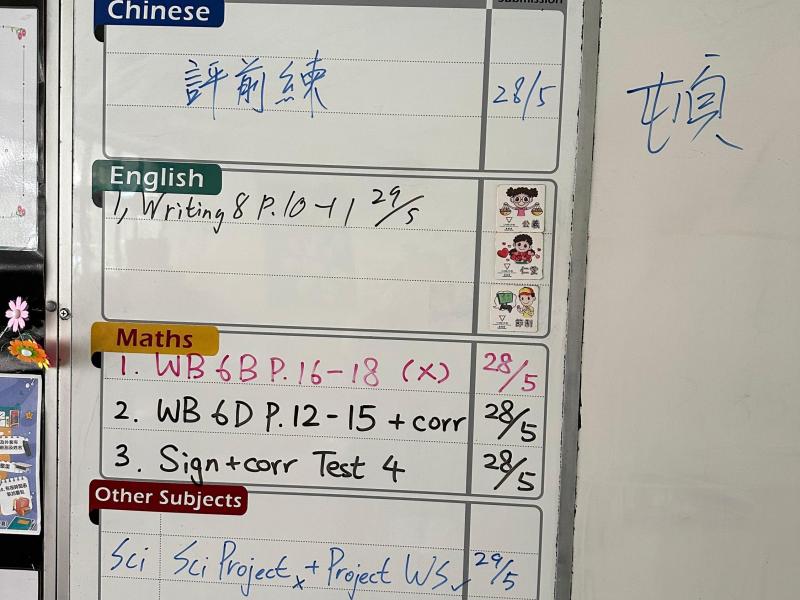 Submission
Chinese
評前練 28/5
頓
English
1, Writing 8 P.10-11 29/5
公義
仁愛
節制
Maths
1. WB 6B P.16-18 (x) 28/5
2. WB 6D P.12-15 + corr 28/5
3. Sign+corr Test 4 28/5
Other Subjects
Sci Sci Project x + Project WS ✓ 29/5